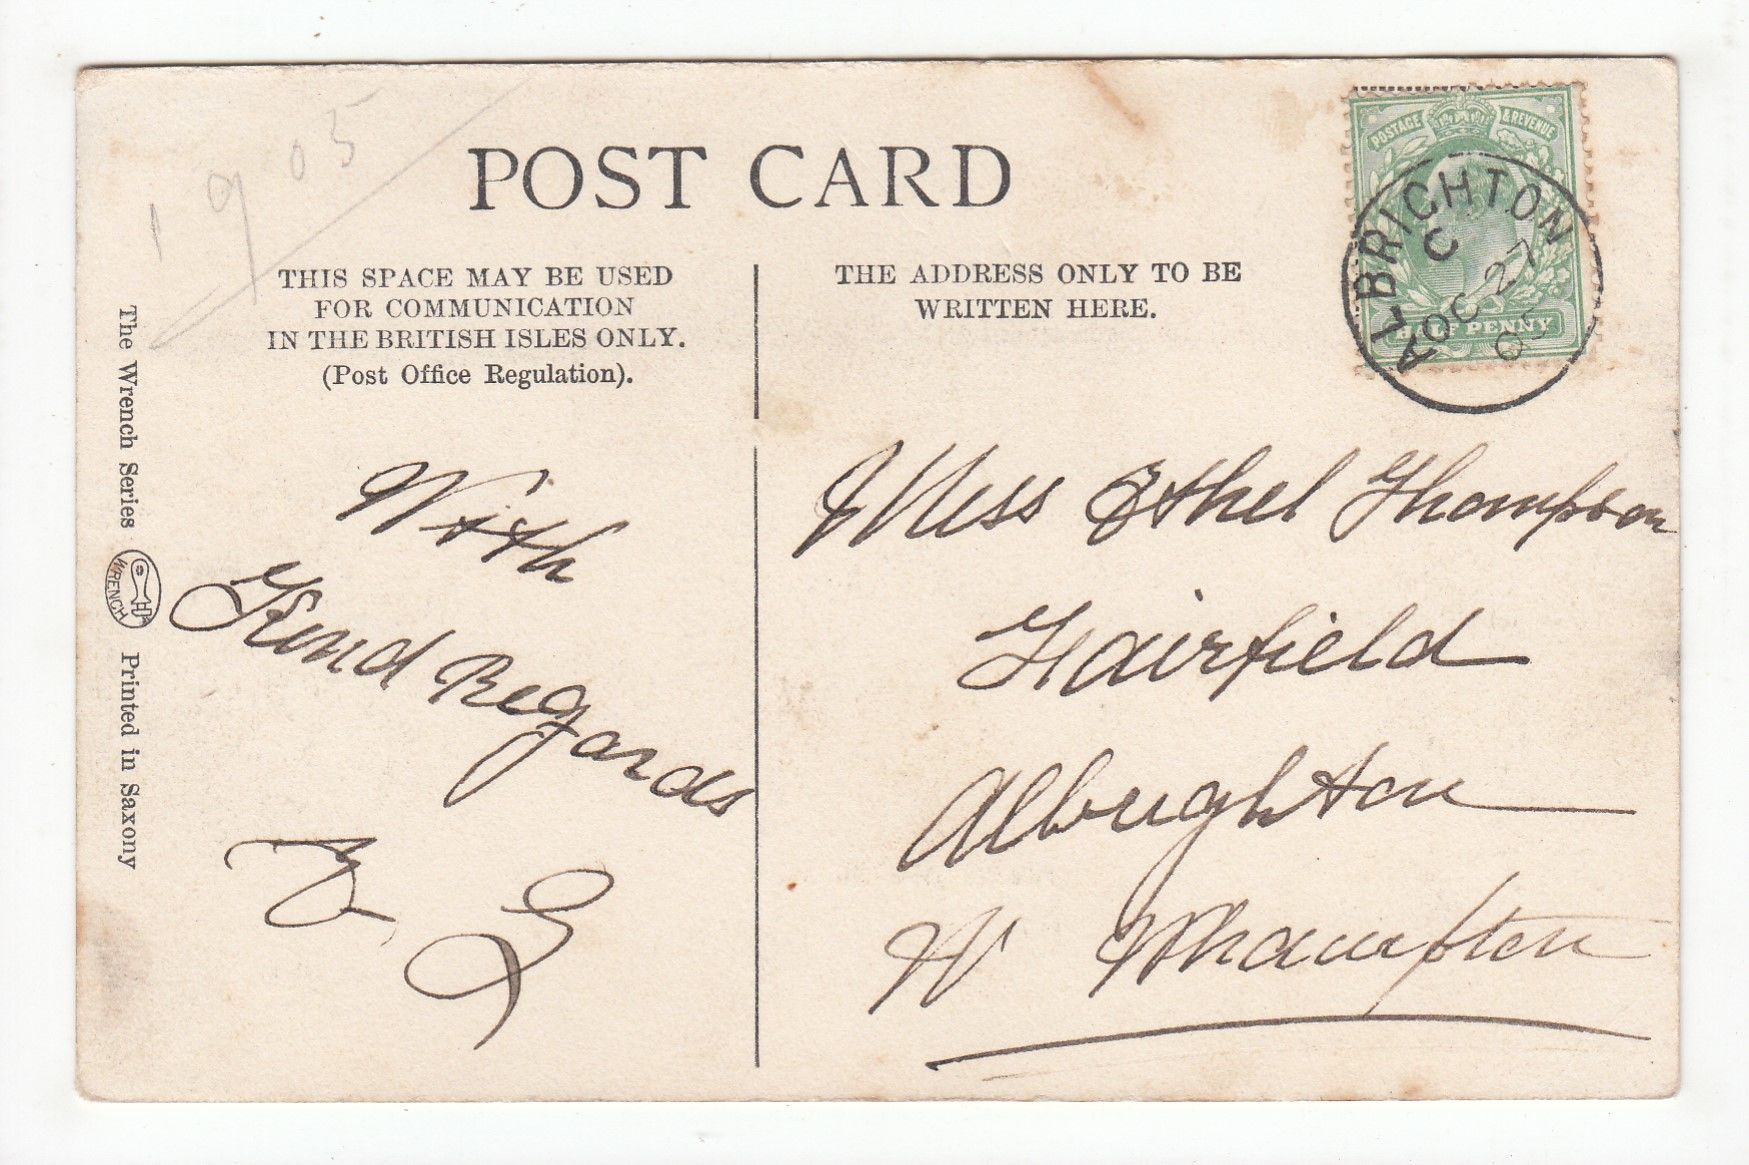 1905
POST CARD
THIS SPACE MAY BE USED
FOR COMMUNICATION
IN THE BRITISH ISLES ONLY.
(Post Office Regulation).
THE ADDRESS ONLY TO BE
WRITTEN HERE.
POSTAGE & REVENUE
HALF PENNY
ALBRIGHTON
C
OC 27
05
The Wrench Series
WRENCH
Printed in Saxony
With
Kind Regards
Miss Ethel Thompson
Fairfield
Albrighton
Nr Whampton